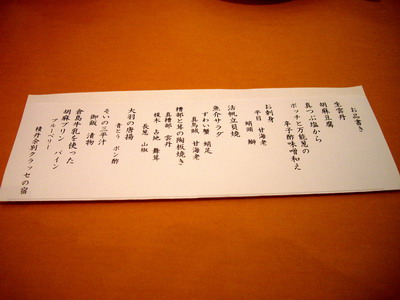 お品書き
生雲丹
胡麻豆腐
真つぶ塩から
ボッチと万能葱の
辛子酢味噌和え
お刺身
平目 甘海老
蛸頭 鰤
活帆立貝焼
魚介サラダ
ずわい蟹 蛸足
真烏賊 甘海老
糟部と茸の陶板焼き
真糟部 雲丹
榎木 占地 舞茸
長葱 山椒
大羽の唐揚
青とう ポン酢
そいの三平汁
御飯 漬物
倉島牛乳を使った
胡麻プリン パイン
ブルーベリー
積丹余別クラッセの宿